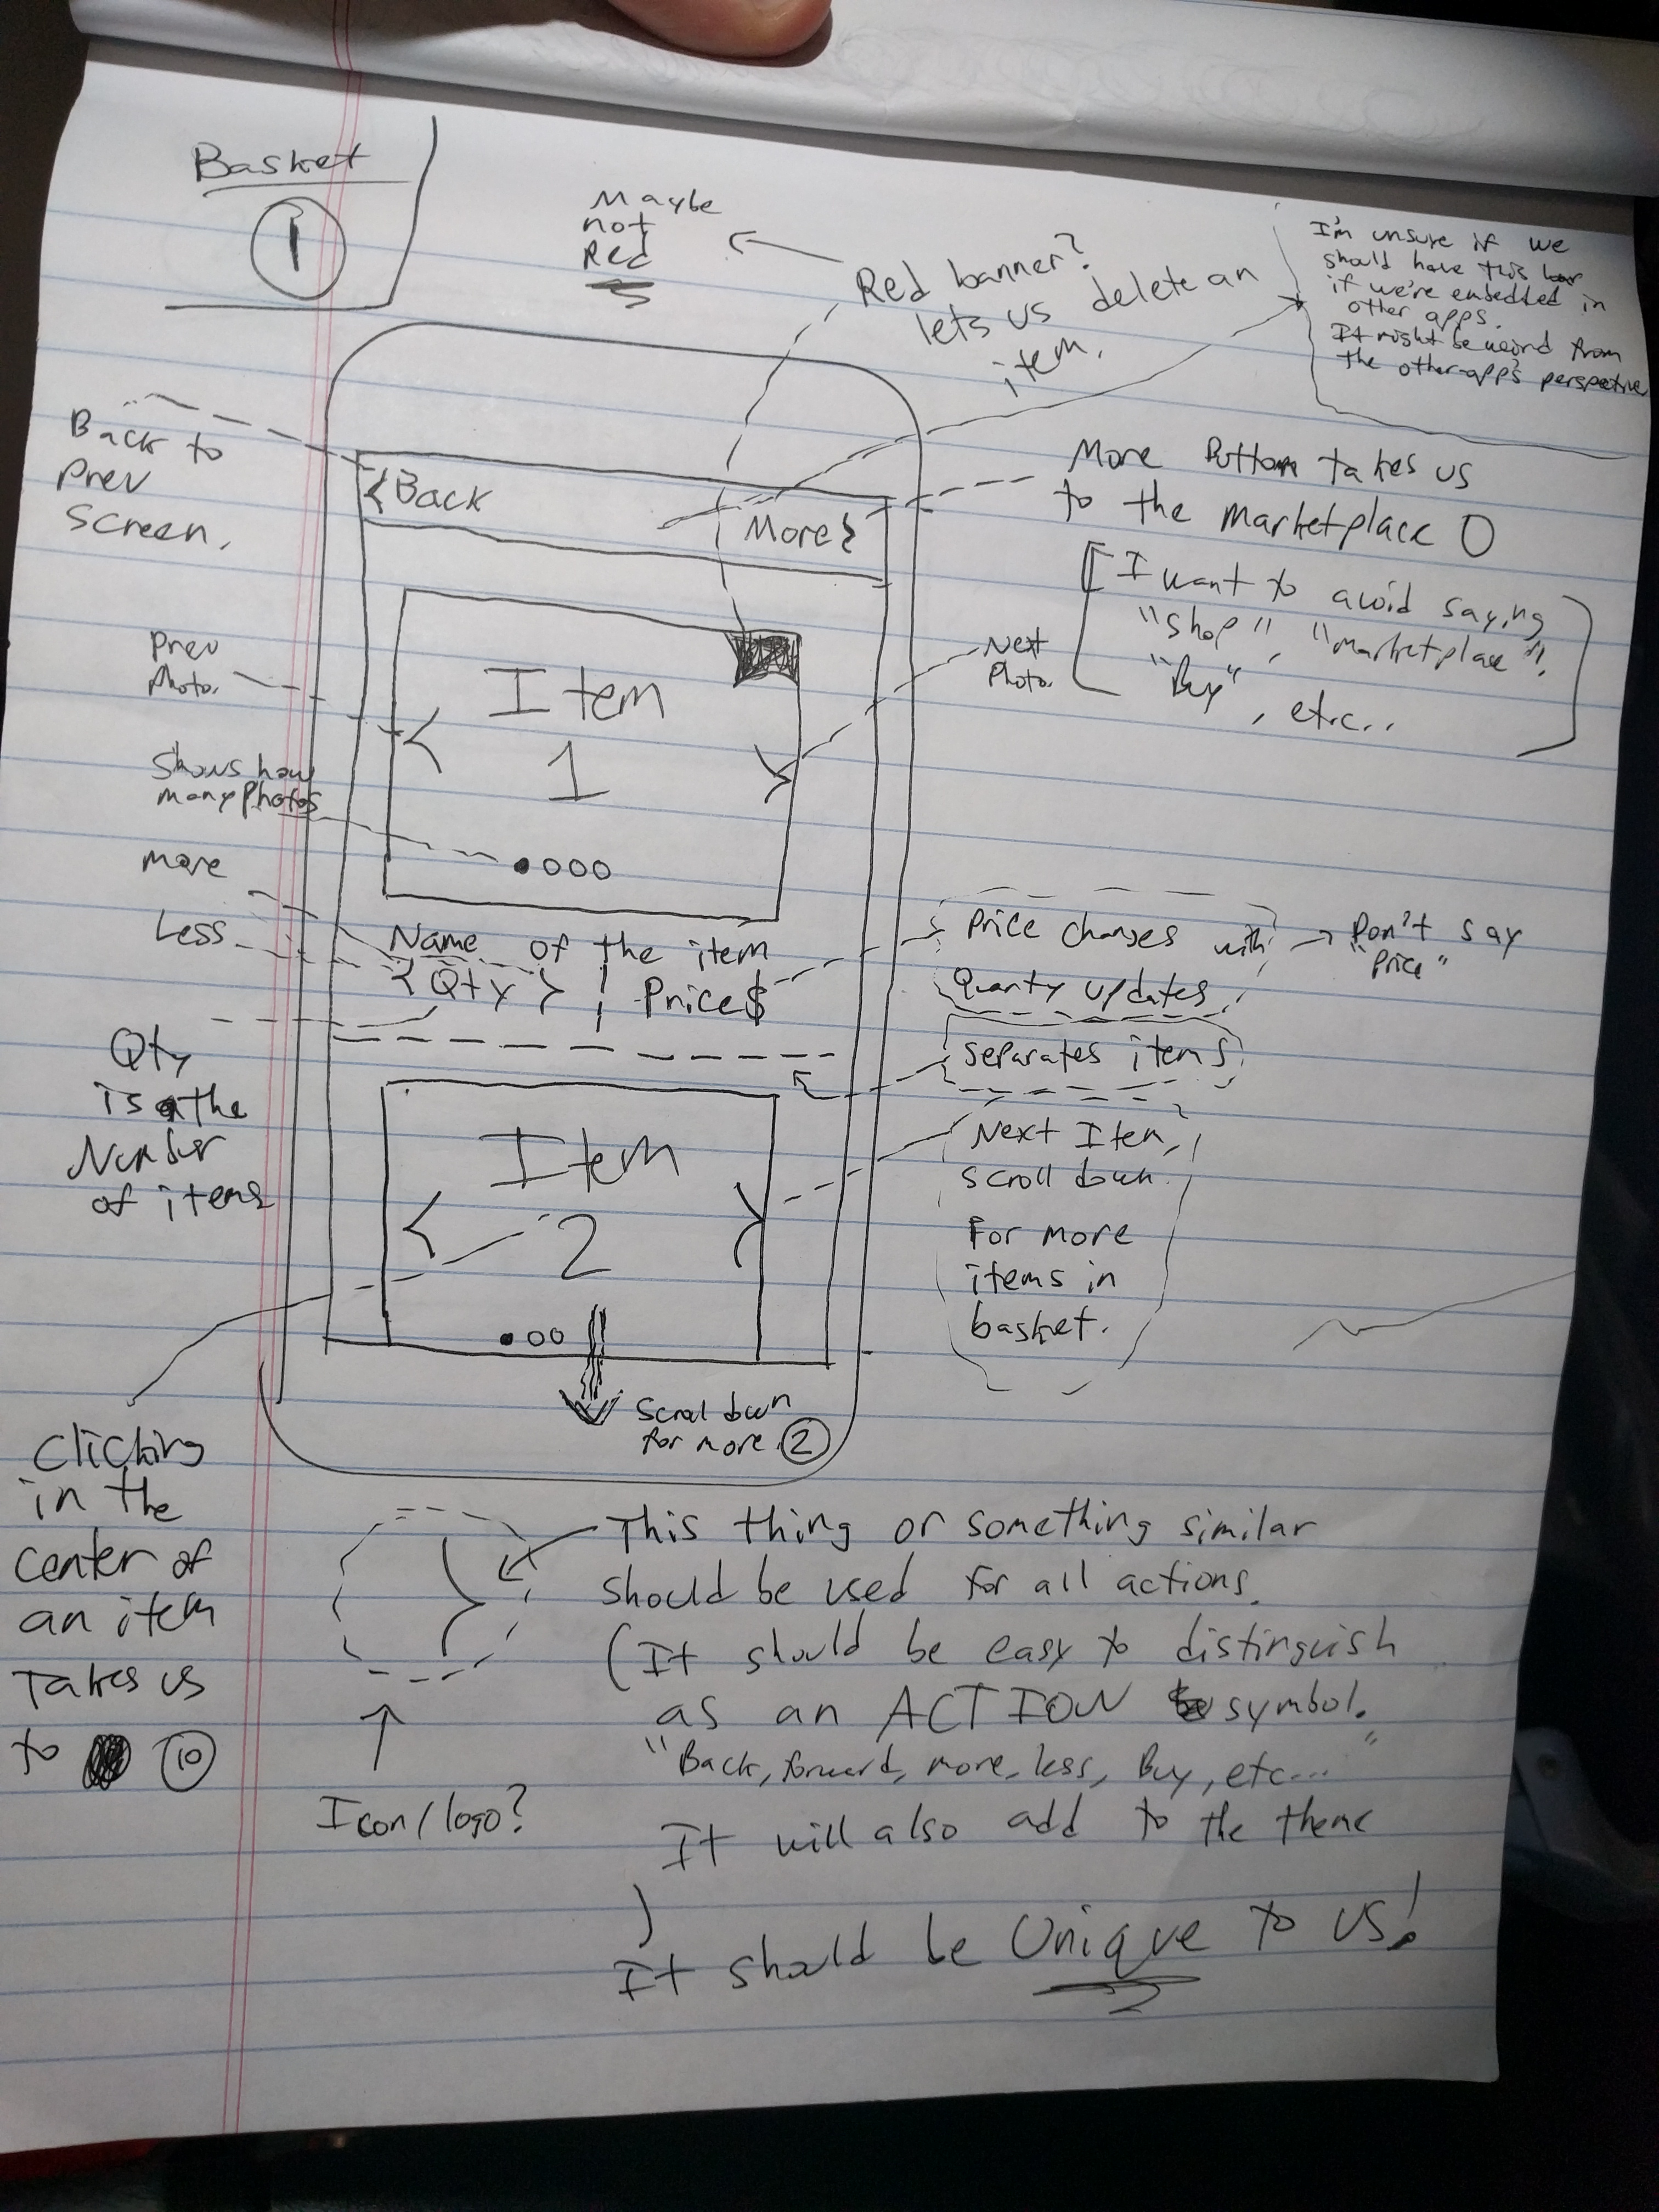 Basket
1
Maybe
not
Red
Red banner?
lets us delete an
item.
I'm unsure if we
should have this bar
if we're embedded in
other apps.
It might be weird from
the other app's perspective
Back to
Prev
Screen.
<Back
More>
More Button takes us
to the marketplace 0
[I want to avoid saying
"Shop", "marketplace",
"Buy", etc..]
Prev
Photo.
Next
Photo.
Item
< 1 >
Shows how
many Photos
more
Less
Name of the item
<Qty> | Price$
Price changes with
Quanty updates
Don't say
"Price"
separates items
Qty
is the
Number
of items
Item
< 2 >
Next Item,
scroll down
For more
items in
basket.
Scroll down
for more 2
Clicking
in the
center of
an item
Takes us
to 10
Icon/logo?
This thing or something similar
should be used for all actions.
(It should be easy to distinguish
as an ACTION symbol.
"Back, forward, more, less, Buy, etc..."
It will also add to the theme
)
It should be Unique to us!